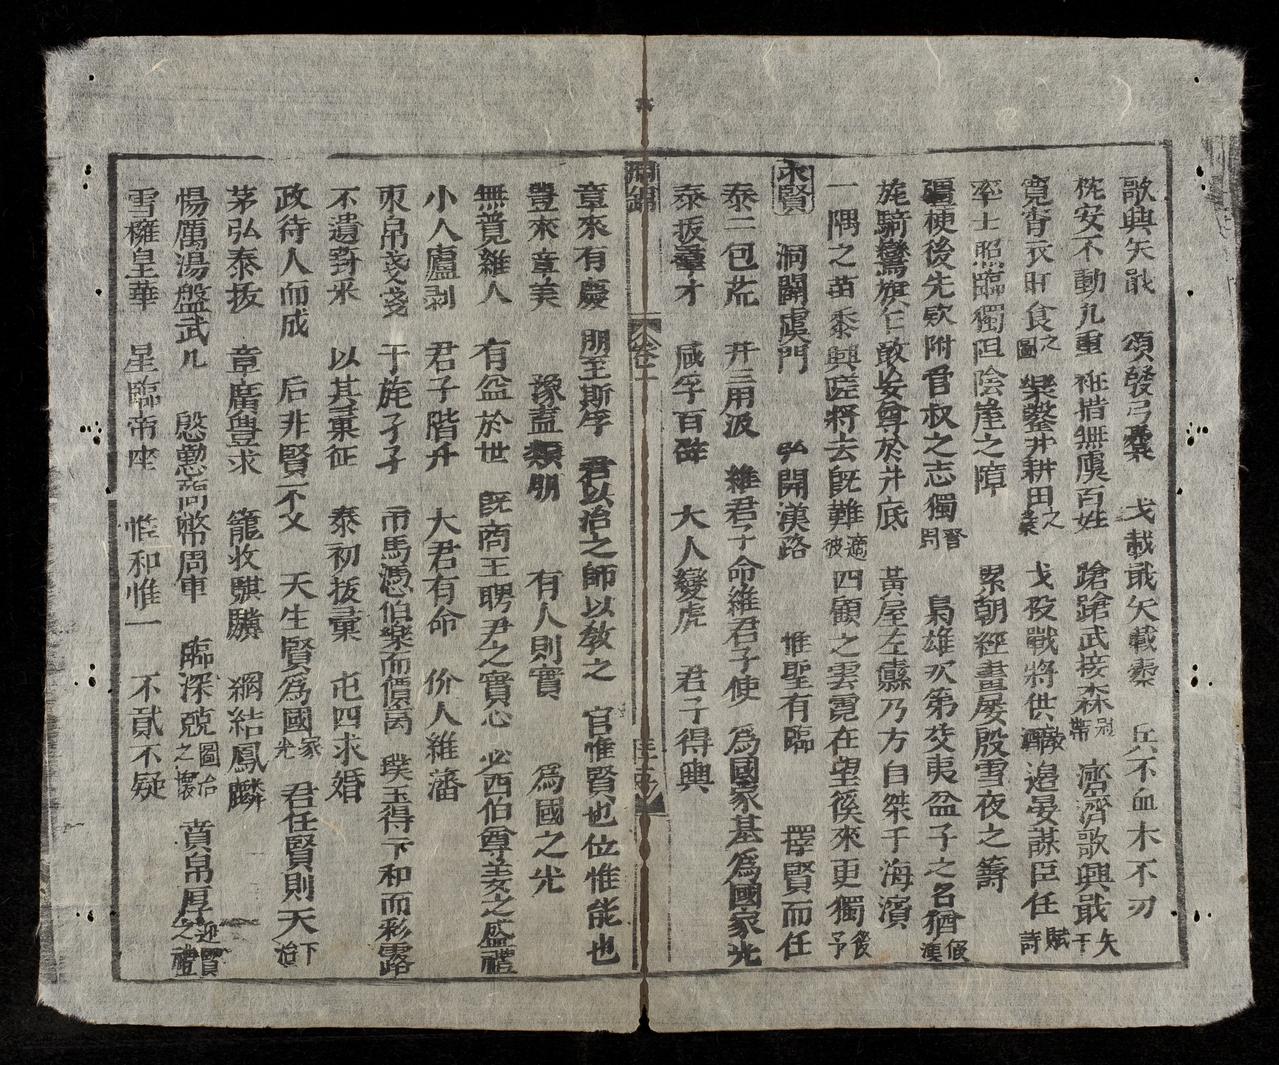 歌興矢戢 頌發弓櫜 戈載戢矢載櫜 兵不血木不刃
枕安不動几重 袵措無虞百姓 蹌蹌武接森冠帶 濟濟歌興戢矢干
寬宵衣旰食之圖 樂鑿井耕田之業 戈投戰將供敵 邊晏謀臣任賦詩
率土照臨獨阻陰崖之障 累朝經畫屢殷雪夜之籌
疆梗後先欵附管叔之志獨賢周 梟雄次第芟夷盆子之名猶假漢
旄騎鸞旗仁敢妄尊於井底 黃屋左纛乃方自桀于海濱
一隅之苗黍興嗟將去旣難適彼 四顧之雲霓在望徯來更獨後予
求賢 洞闢虞門 弘開漢路 惟聖有臨 擇賢而任
泰二包荒 井三用汲 維君子命維君子使 爲國家基爲國家光
泰拔羣才 咸孚百辟 大人變虎 君子得輿
卷十
章來有慶 朋至斯孚 君以治之師以敎之 官惟賢也位惟能也
豊來章美 豫盍類朋 有人則實 爲國之光
無競維人 有益於世 旣商王聘尹之實心 必西伯尊姜之盛禮
小人廬剥 君子階升 大君有命 价人維藩
束帛戔戔 于旄孑孑 市馬憑伯樂而價高 璞玉得卞和而彩露
不遺葑采 以其彙征 泰初拔彙 屯四求婚
政待人而成 后非賢不乂 天生賢爲國家光 君任賢則天下治
茅弘泰拔 章廣豊求 籠收騏驥 網結鳳麟
惕厲湯盤武几 慇懃商幣周車 臨深兢圖治之懷 賁帛厚迎賢之禮
雪擁皇華 星臨帝座 惟和惟一 不貳不疑